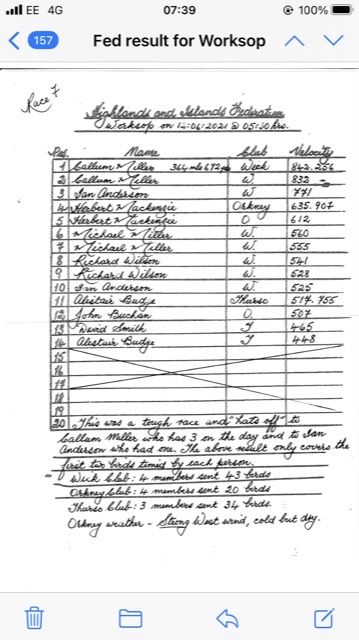 EE 4G 07:39 100%
157 Fed result for Worksop
Race 7
Highlands and Islands Federation
Worksop on 12:06:2021 @ 05:30 hrs.
Pos. Name Club Velocity
1 Callum & Miller 364 mls 672 yds Wick 842.256
2 Callum & Miller W 832
3 Ian Anderson W 771
4 Herbert & Mackenzie Orkney 635.907
5 Herbert & Mackenzie O 612
6 Michael & Miller W. 560
7 Michael & Miller W. 555
8 Richard Wilson W. 541
9 Richard Wilson W. 528
10 Ian Anderson W. 525
11 Alistair Budge Thurso 517.755
12 John Buchan O. 507
13 David Smith T 465
14 Alistair Budge T 448
15
16
17
18
19
20 This was a tough race and "hats off" to
Callum Miller who has 3 on the day and to Ian
Anderson who had one. The above result only covers the
first two birds timed by each person.
Wick Club: 4 members sent 43 birds
Orkney Club: 4 members sent 20 birds
Thurso Club: 3 members sent 34 birds.
Orkney weather - Strong West wind, cold but dry.